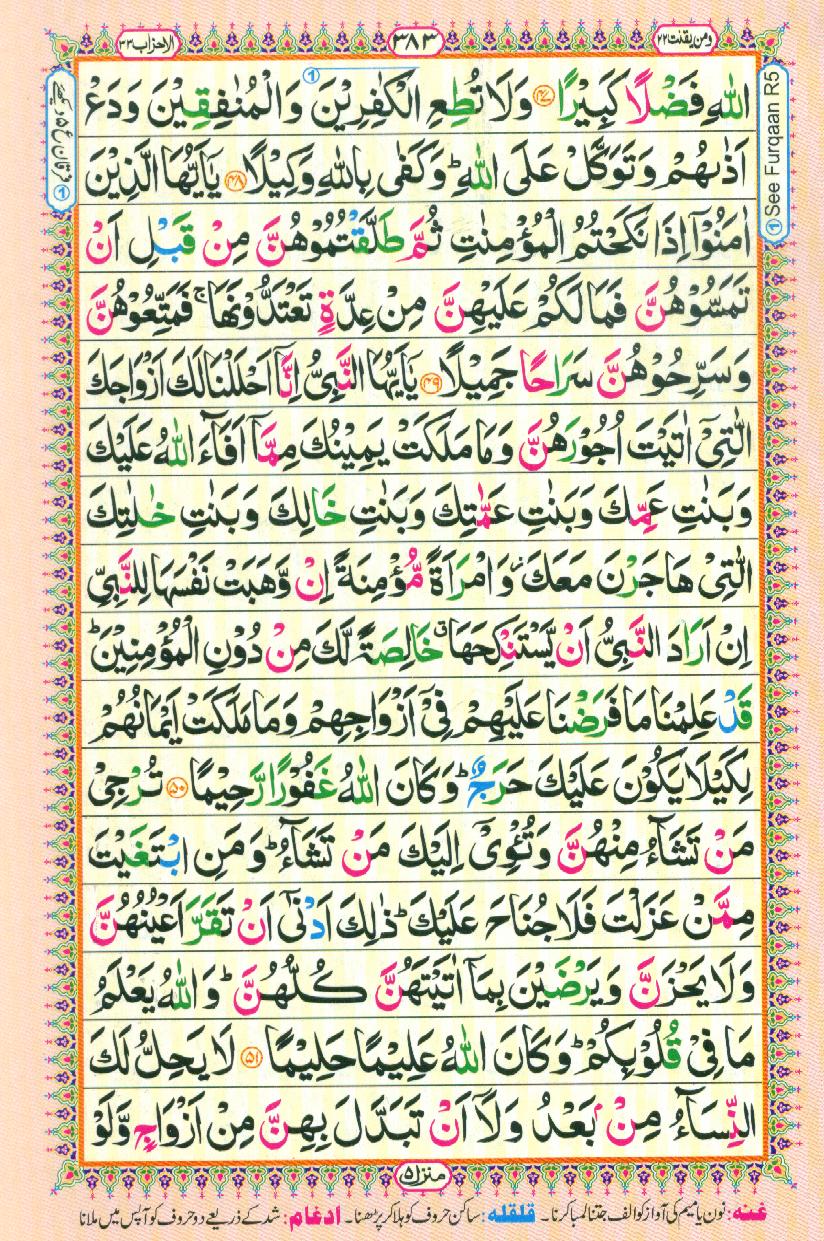 ومن یقنت ۲۲
۳۸۳
الاحزاب ۳۳
① See Furqaan R5
اللّٰهِ فَضْلًا كَبِیْرًا ﴿۴۷﴾ وَلَا تُطِعِ الْكٰفِرِیْنَ وَالْمُنٰفِقِیْنَ وَدَعْ
اَذٰىهُمْ وَتَوَكَّلْ عَلَى اللّٰهِ ؕ وَكَفٰى بِاللّٰهِ وَكِیْلًا ﴿۴۸﴾ یٰۤاَیُّهَا الَّذِیْنَ
اٰمَنُوْۤا اِذَا نَكَحْتُمُ الْمُؤْمِنٰتِ ثُمَّ طَلَّقْتُمُوْهُنَّ مِنْ قَبْلِ اَنْ
تَمَسُّوْهُنَّ فَمَا لَكُمْ عَلَیْهِنَّ مِنْ عِدَّةٍ تَعْتَدُّوْنَهَا ۚ فَمَتِّعُوْهُنَّ
وَسَرِّحُوْهُنَّ سَرَاحًا جَمِیْلًا ﴿۴۹﴾ یٰۤاَیُّهَا النَّبِیُّ اِنَّاۤ اَحْلَلْنَا لَكَ اَزْوَاجَكَ
الّٰتِیْۤ اٰتَیْتَ اُجُوْرَهُنَّ وَمَا مَلَكَتْ یَمِیْنُكَ مِمَّاۤ اَفَآءَ اللّٰهُ عَلَیْكَ
وَبَنٰتِ عَمِّكَ وَبَنٰتِ عَمّٰتِكَ وَبَنٰتِ خَالِكَ وَبَنٰتِ خٰلٰتِكَ
الّٰتِیْ هَاجَرْنَ مَعَكَ ؗ وَامْرَاَةً مُّؤْمِنَةً اِنْ وَّهَبَتْ نَفْسَهَا لِلنَّبِیِّ
اِنْ اَرَادَ النَّبِیُّ اَنْ یَّسْتَنْكِحَهَا ۗ خَالِصَةً لَّكَ مِنْ دُوْنِ الْمُؤْمِنِیْنَ ؕ
قَدْ عَلِمْنَا مَا فَرَضْنَا عَلَیْهِمْ فِیْۤ اَزْوَاجِهِمْ وَمَا مَلَكَتْ اَیْمَانُهُمْ
لِكَیْلَا یَكُوْنَ عَلَیْكَ حَرَجٌ ؕ وَكَانَ اللّٰهُ غَفُوْرًا رَّحِیْمًا ﴿۵۰﴾ تُرْجِیْ
مَنْ تَشَآءُ مِنْهُنَّ وَتُـْٔوِیْۤ اِلَیْكَ مَنْ تَشَآءُ ؕ وَمَنِ ابْتَغَیْتَ
مِمَّنْ عَزَلْتَ فَلَا جُنَاحَ عَلَیْكَ ؕ ذٰلِكَ اَدْنٰۤى اَنْ تَقَرَّ اَعْیُنُهُنَّ
وَلَا یَحْزَنَّ وَیَرْضَیْنَ بِمَاۤ اٰتَیْتَهُنَّ كُلُّهُنَّ ؕ وَاللّٰهُ یَعْلَمُ
مَا فِیْ قُلُوْبِكُمْ ؕ وَكَانَ اللّٰهُ عَلِیْمًا حَلِیْمًا ﴿۵۱﴾ لَا یَحِلُّ لَكَ
النِّسَآءُ مِنْۢ بَعْدُ وَلَاۤ اَنْ تَبَدَّلَ بِهِنَّ مِنْ اَزْوَاجٍ وَّلَوْ
منزل ۵
غنه: نون یا میم کی آواز کو الف جتنا لمبا کرنا۔ قلقله: ساکن حروف کو ہلا کر پڑھنا۔ ادغام: شد کے ذریعے دو حروف کو آپس میں ملانا